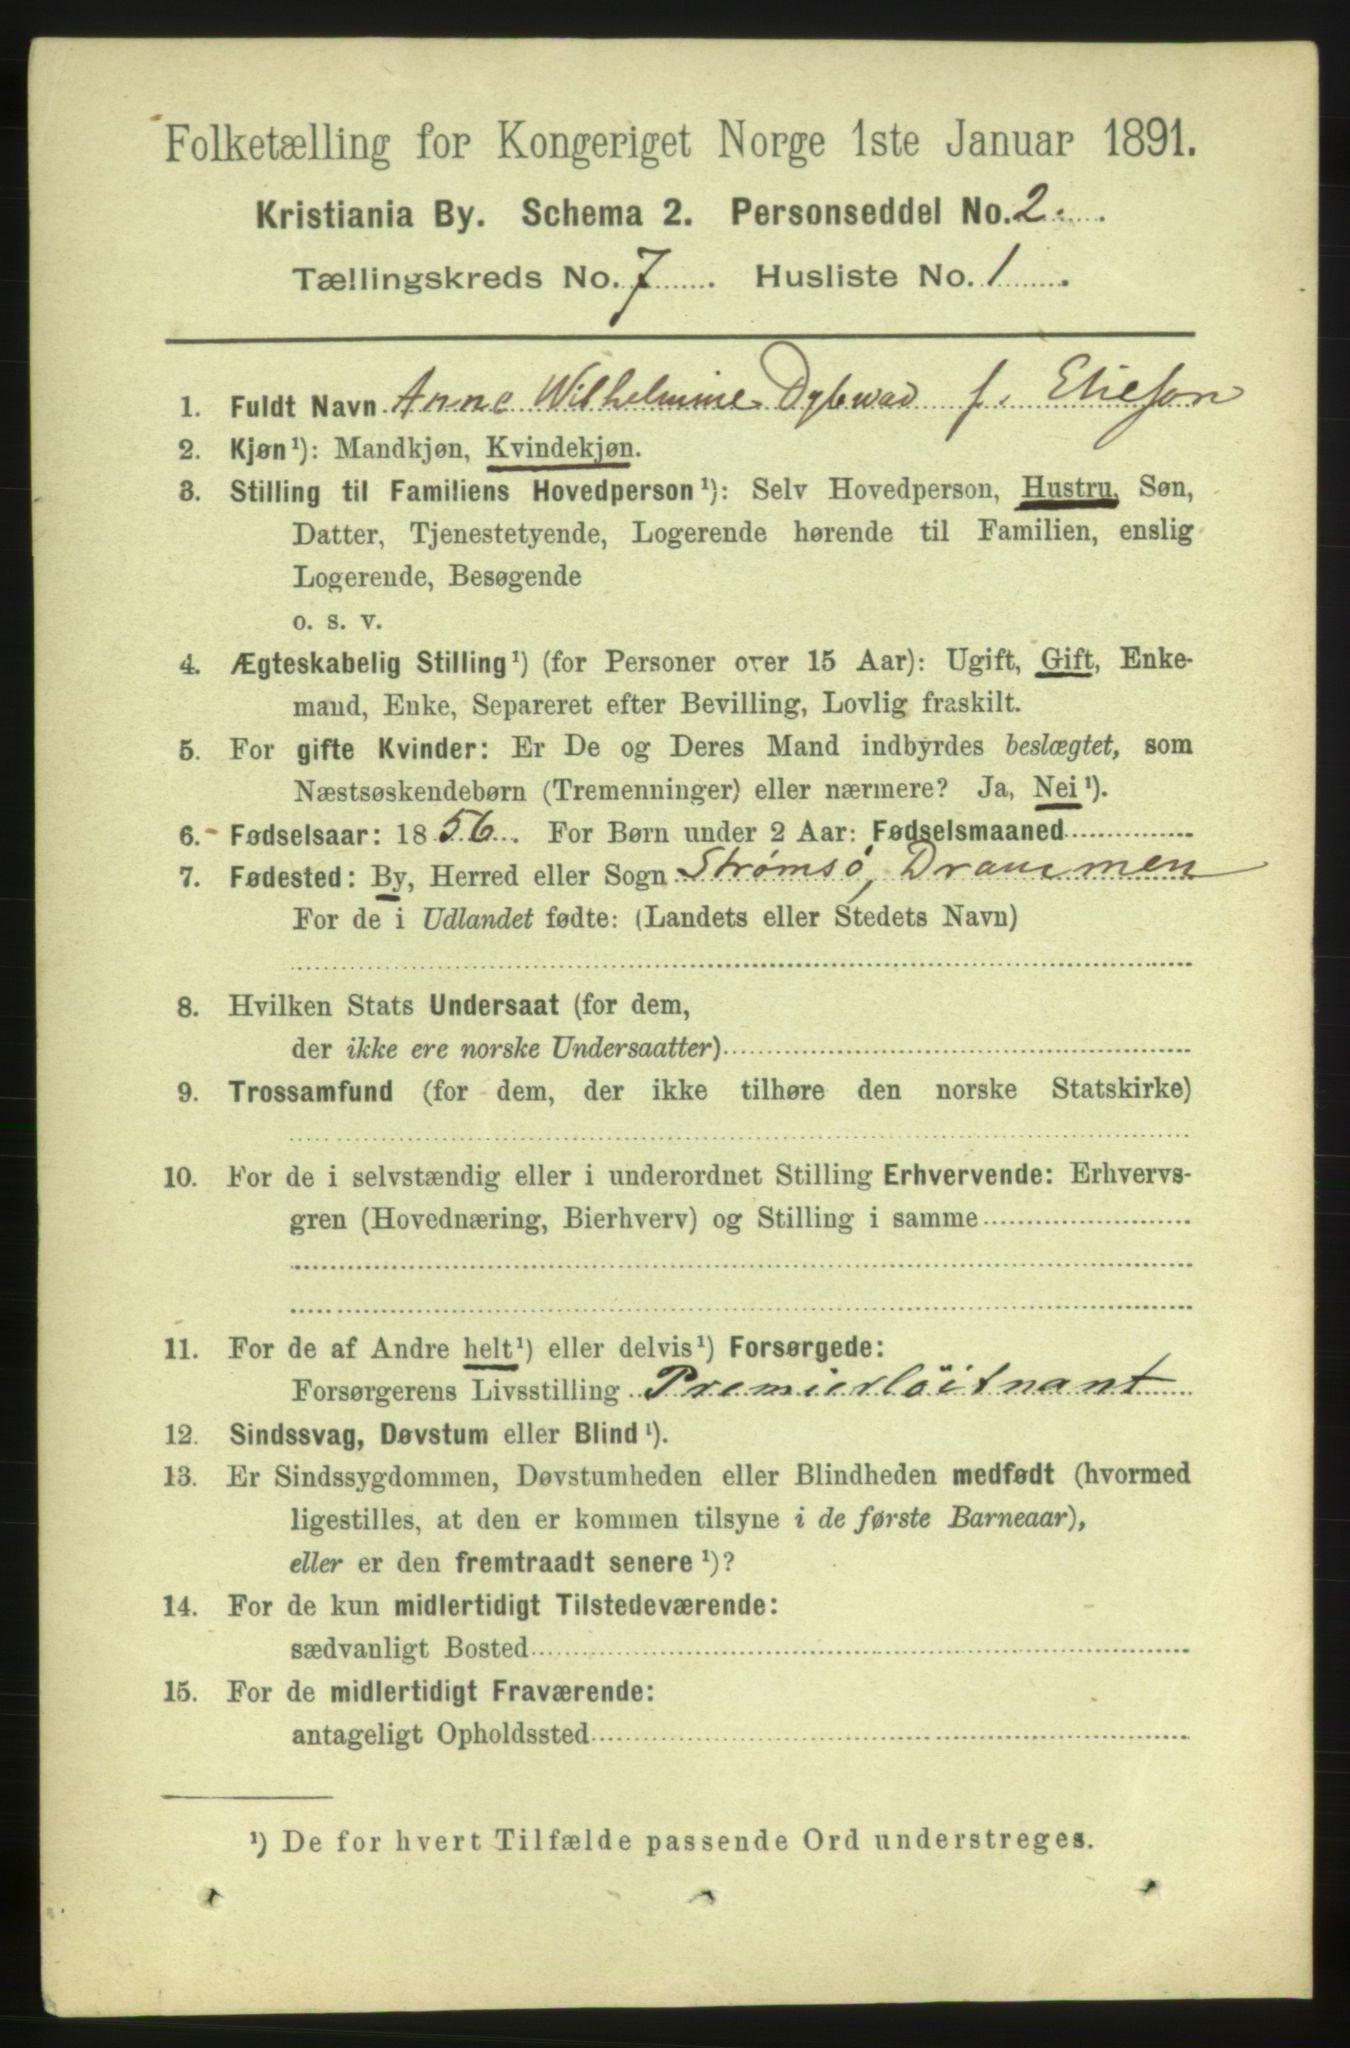 Folketælling for Kongeriget Norge 1ste Januar 1891.
Kristiania By. Schema 2. Personseddel No. 2.
Tællingskreds No. 7. Husliste No. 1.
1. Fuldt Navn Anne Wilhelmine Dybwad f. Elieson
2. Kjøn¹): Mandkjøn, Kvindekjøn.
3. Stilling til Familiens Hovedperson¹): Selv Hovedperson, Hustru, Søn,
Datter, Tjenestetyende, Logerende hørende til Familien, enslig
Logerende, Besøgende
o. s. v.
4. Ægteskabelig Stilling¹) (for Personer over 15 Aar): Ugift, Gift, Enke-
mand, Enke, Separeret efter Bevilling, Lovlig fraskilt.
5. For gifte Kvinder: Er De og Deres Mand indbyrdes beslægtet, som
Næstsøskendebørn (Tremenninger) eller nærmere? Ja, Nei¹).
6. Fødselsaar: 1856. For Børn under 2 Aar: Fødselsmaaned
7. Fødested: By, Herred eller Sogn Strømsö, Drammen
For de i Udlandet fødte: (Landets eller Stedets Navn)
8. Hvilken Stats Undersaat (for dem,
der ikke ere norske Undersaatter)
9. Trossamfund (for dem, der ikke tilhøre den norske Statskirke)
10. For de i selvstændig eller i underordnet Stilling Erhvervende: Erhvervs-
gren (Hovednæring, Bierhverv) og Stilling i samme
11. For de af Andre helt¹) eller delvis¹) Forsørgede:
Forsørgerens Livsstilling Premierlöitnant
12. Sindssvag, Døvstum eller Blind¹).
13. Er Sindssygdommen, Døvstumheden eller Blindheden medfødt (hvormed
ligestilles, at den er kommen tilsyne i de første Barneaar),
eller er den fremtraadt senere¹)?
14. For de kun midlertidigt Tilstedeværende:
sædvanligt Bosted
15. For de midlertidigt Fraværende:
antageligt Opholdssted
¹) De for hvert Tilfælde passende Ord understreges.